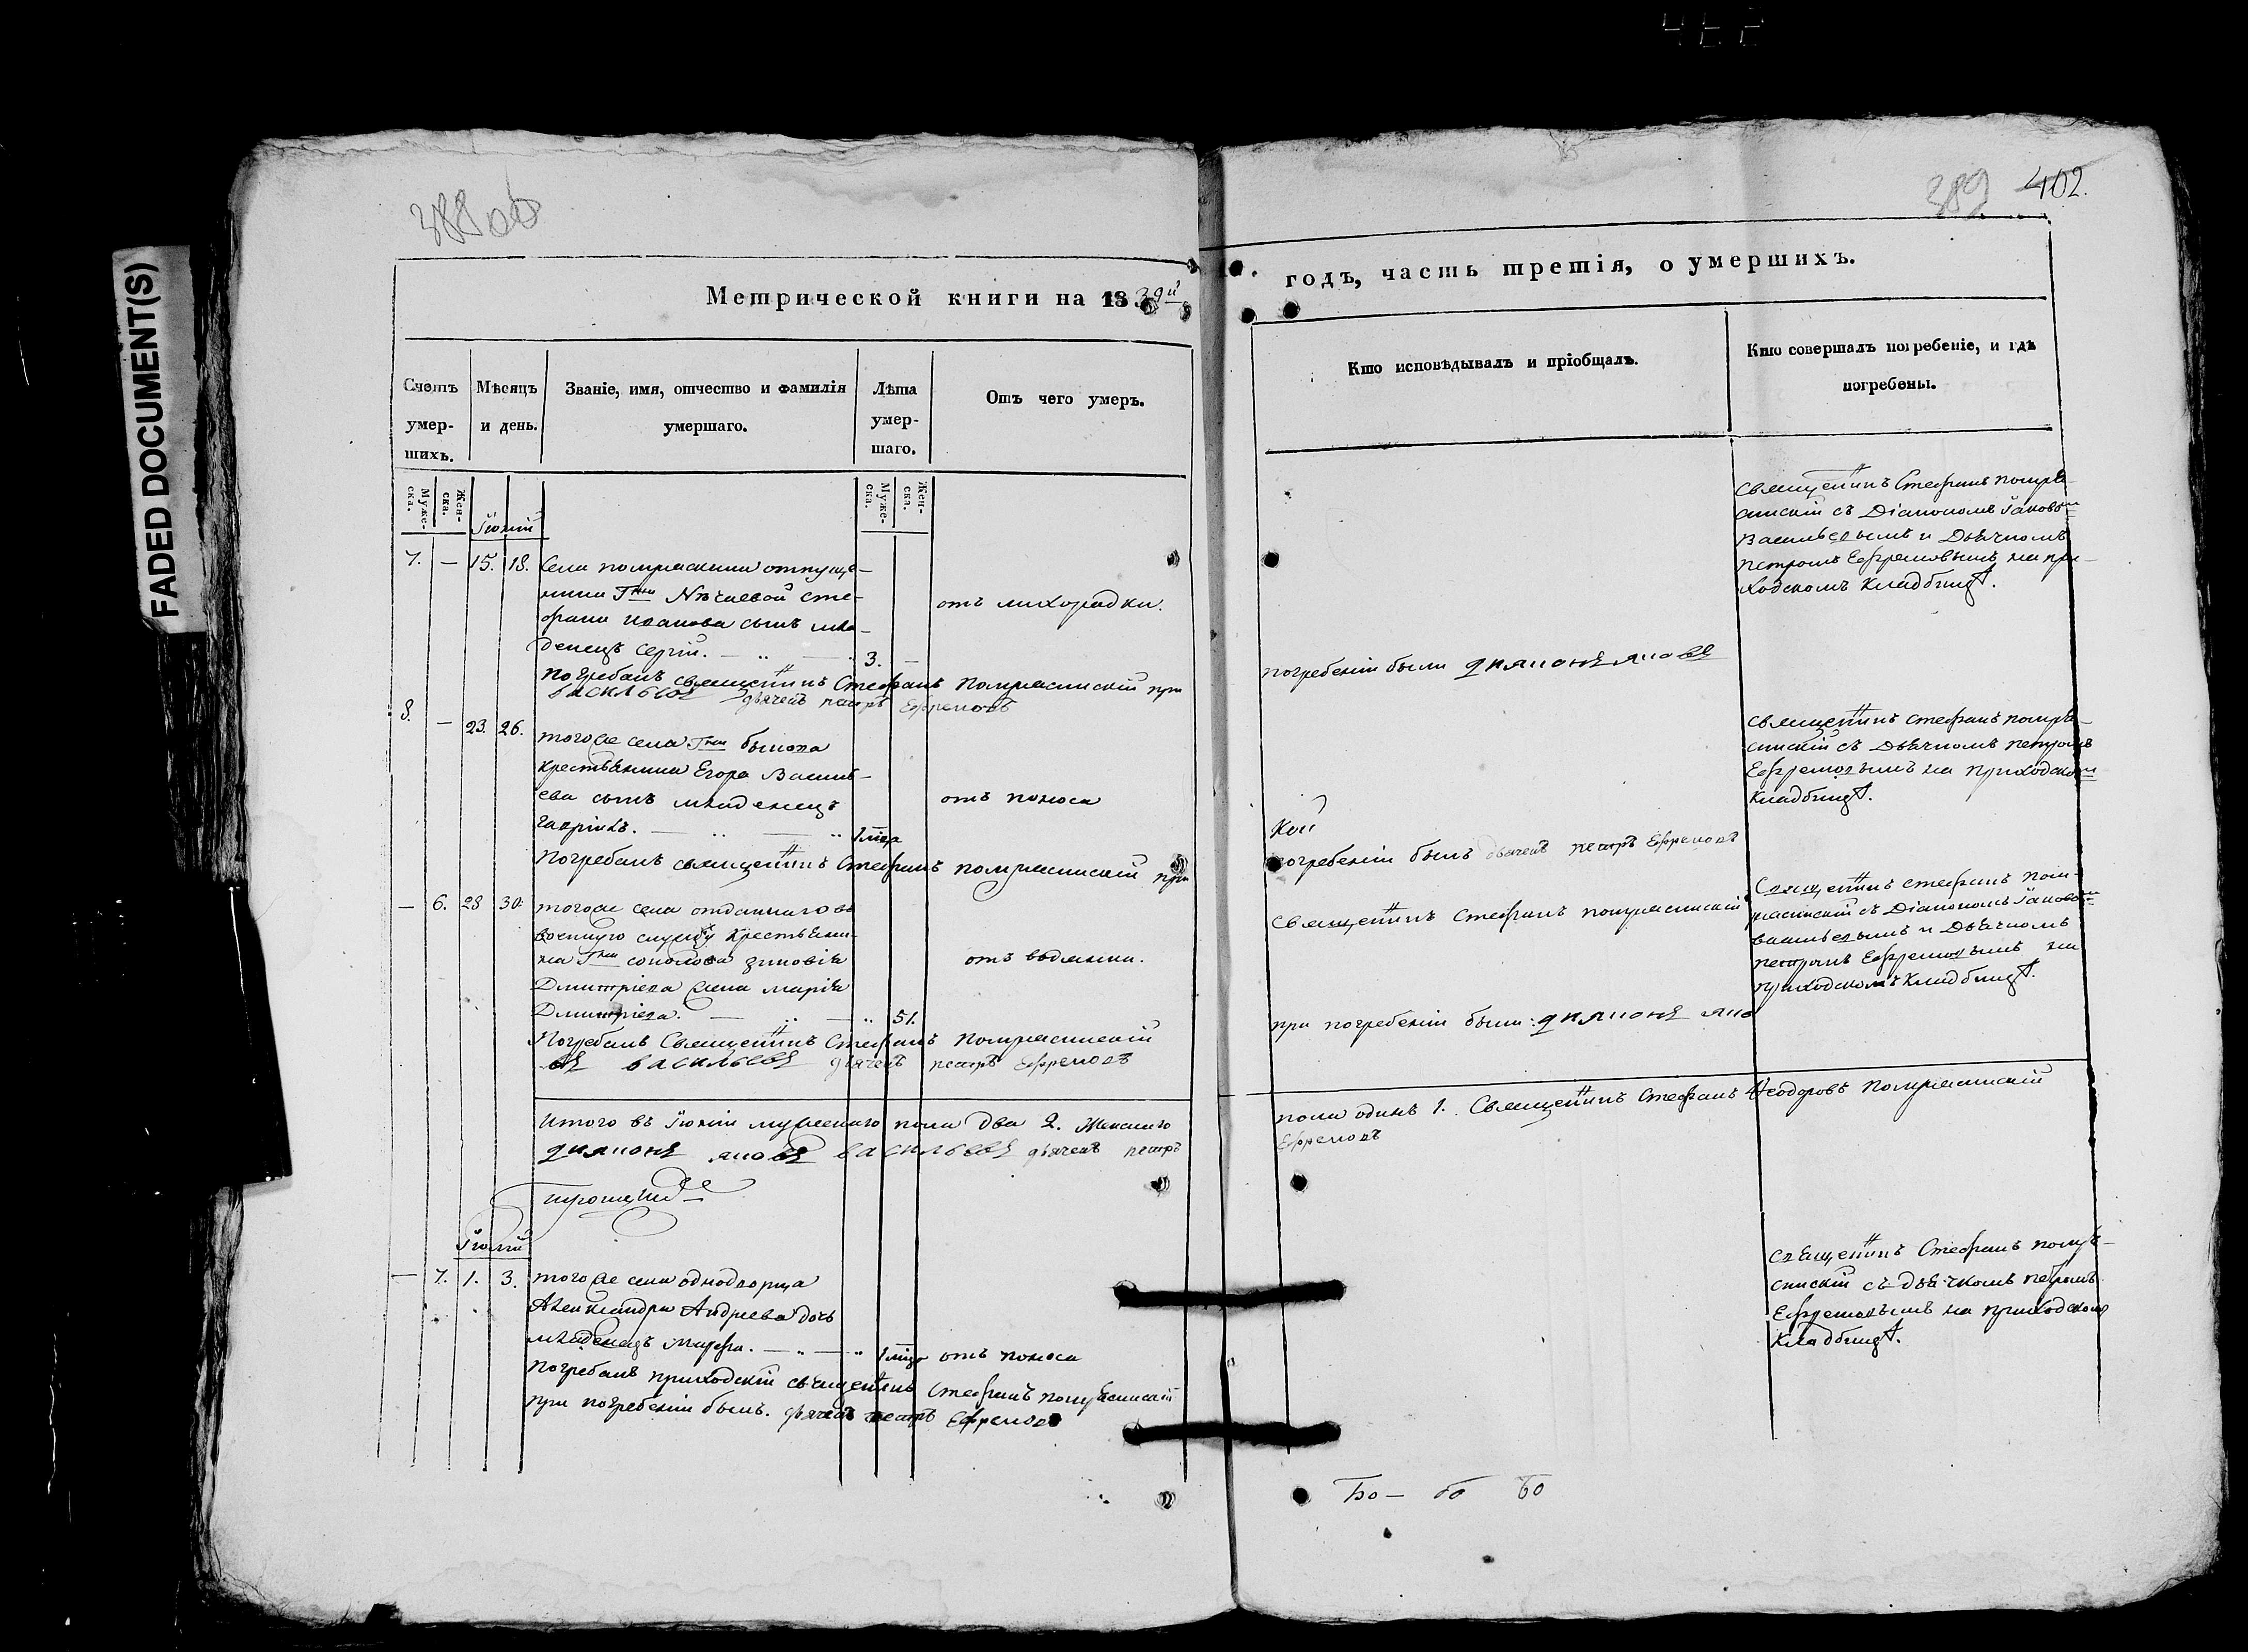 FADED DOCUMENT(S)
388 об
389 402.
Метрической книги на 1839й
годъ, часть третія, о умершихъ.
Счетъ умер-шихъ.
Мѣсяцъ и день.
Званіе, имя, отчество и фамилія умершаго.
Лѣта умер-шаго.
Отъ чего умеръ.
Кто исповѣдывалъ и пріобщалъ.
Кто совершалъ погребеніе, и гдѣ погребены.
Муже-ска.
Жен-ска.
Муже-ска.
Жен-ска.
Іюній
7. — 15. 18. Села
Гжи Нѣчаевой Сте-
фана Иванова сынъ мла-
денецъ Сергій. 3. —
отъ лихорадки.
Погребалъ священникъ Стефанъ при
погребеніи были диаконъ Яковъ
Васильевъ дьячекъ петръ Ефремовъ
священникъ Стефанъ
съ Діакономъ Іаковомъ
Васильевымъ и Дьячкомъ
Петромъ Ефремовымъ на при-
ходскомъ кладбищѣ.
8. — 23. 26. тогоже села Гжи
крестьянина Егора Василь-
ева сынъ младенецъ
Гавріилъ. 1 мца
отъ поноса
Погребалъ священникъ Стефанъ при
кой
погребеніи былъ дьячекъ петръ Ефремовъ
священникъ Стефанъ
съ Дьячкомъ петромъ
Ефремовымъ на приходскомъ
кладбищѣ.
— 6. 28 30. тогоже села отданнаго въ
военную службу крестьяни-
на Гжи Соколова Зиновія
Дмитріева жена Марія
Дмитріева. 51.
отъ водянки.
Священникъ Стефанъ
Погребалъ Священникъ Стефанъ
при погребеніи были: диаконъ Яко
въ Васильевъ дьячекъ петръ Ефремовъ
Священникъ Стефанъ
съ Діакономъ Іаковомъ
Васильевымъ и Дьячкомъ
петромъ Ефремовымъ на
приходскомъ кладбищѣ.
Итого въ Іюніи мужескаго пола два 2. Женскаго
пола одинъ 1. Священникъ Стефанъ Ѳеодоровъ
диаконъ Яковъ Васильевъ дьячекъ петръ
Ефремовъ
Іюлій
— 7. 1. 3. тогоже села однодворца
Александра Андреева дочь
младенецъ Марфа. 1 мцъ отъ поноса
Погребалъ приходскій священникъ Стефанъ
при погребеніи былъ. дьячекъ петръ Ефремовъ
священникъ Стефанъ
съ дьячкомъ петромъ
Ефремовымъ на приходскомъ
кладбищѣ.
Бо— бо бо